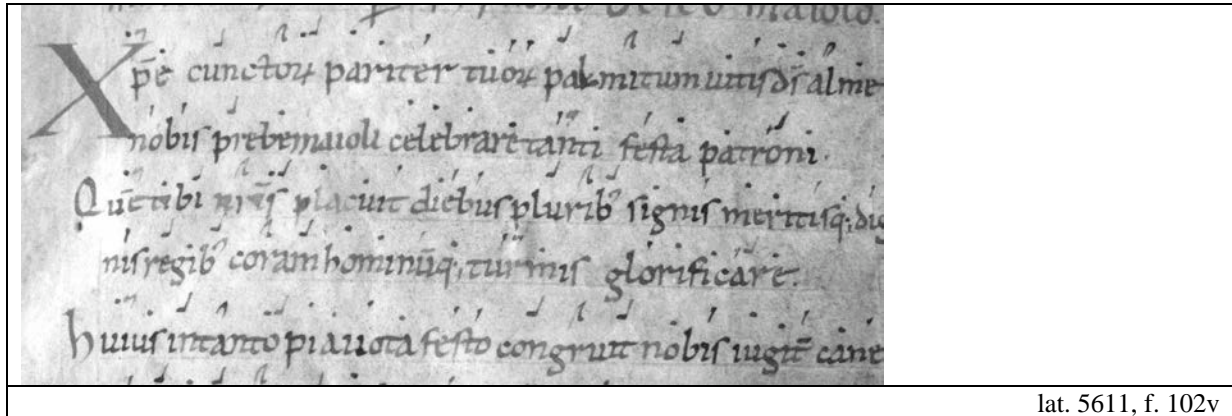 DE SCO MAIOLO.
Xp̄e cunctoꝝ pariter tuoꝝ palmitum uitis dſ̄ alme
nobis prebe maioli celebrare tanti festa patroni.
Quē tibi nr̄is placuit diebus plurib᾽ signis meritisq; dig
nis regib᾽ coram hominūq; turmis glorificare.
Huius in tanto pia uota festo congruit nobis iugit̄ cane
lat. 5611, f. 102v